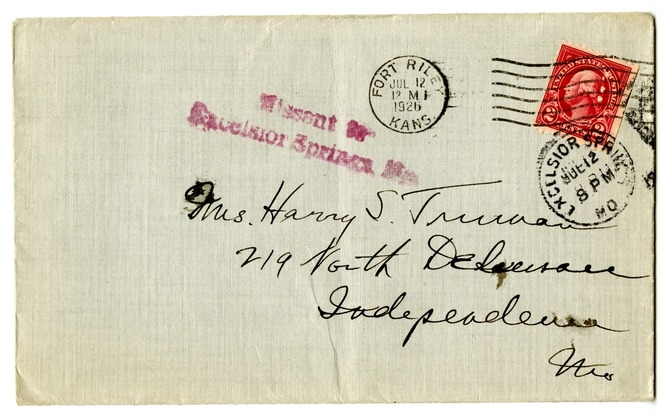 FORT RILEY
JUL 12
12 M
1926
KANS.
UNITED STATES
2
Missent to
Excelsior Springs, Mo.
EXCELSIOR SPRIN
12
8 PM
MO
Mrs. Harry S. Truman
219 North Delaware
Independence
Mo